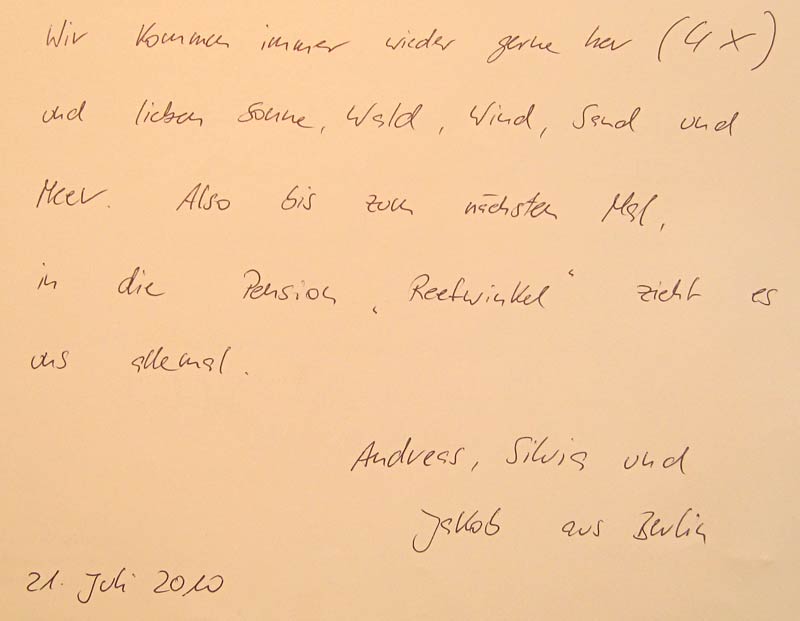 Wir kommen immer wieder gerne her (4x)
und lieben Sonne, Wald, Wind, Sand und
Meer. Also bis zum nächsten Mal,
in die Pension „Reetwinkel“ zieht es
uns allemal.
Andreas, Silvia und
Jakob aus Berlin
21. Juli 2010